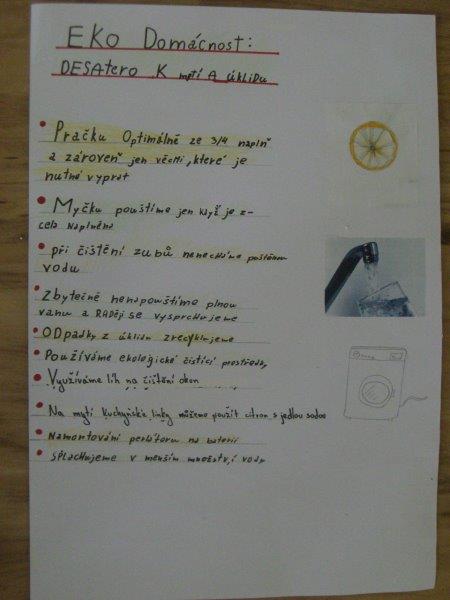 EKO Domácnost:
DESAtero K mytí A úklidu
Pračku Optimálně ze 3/4 naplň
a zároveň jen věcmi, které je
nutné vyprat
Myčku pouštíme jen když je z-
cela naplněná
při čištění zubů nenecháme puštěnou
vodu
Zbytečně nenapouštíme plnou
vanu a RADěji se vysprchujeme
ODpadky z úklidu zrecyklujeme
Používáme ekologické čistící prostředky
Využíváme líh na čištění oken
Na mytí Kuchyňské linky můžeme použít citron s jedlou sodou
Namontování perlátoru na baterii
SPLACHujeme v menším množství vody